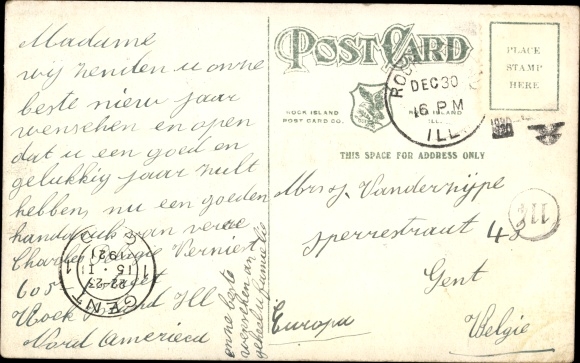 Madame
wij zenden u onze
beste nieuw jaar
wenschen en open
dat u een goed en
gelukkig jaar zult
hebben, nu een goeden
handdruk van verre
Charles Vernie
605-
Rock Island Ill
Nord Americea
onze beste
aan
geheel u famielie
POST CARD
ROCK ISLAND
POST CARD CO.
ROCK ISLAND
ILL.
THIS SPACE FOR ADDRESS ONLY
PLACE
STAMP
HERE
ROC
DEC 30
6 PM
ILL.
Mrs J. Vanderzijpe
sperrestraat 43
Gent
Belgie
Europa
GENT
22-23
15 · I
1921